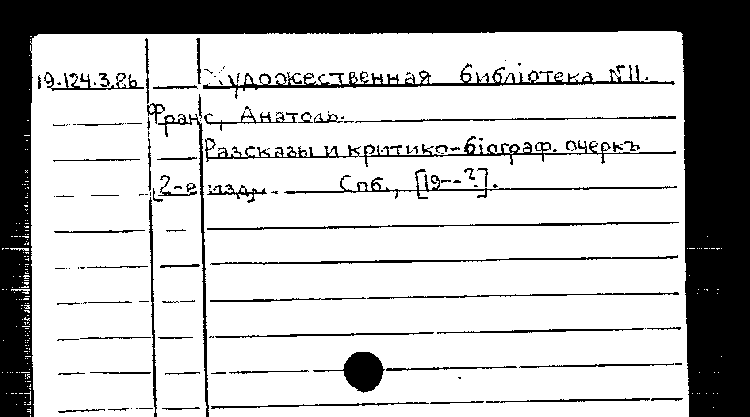 19.124.3.86 Художественная библіотека №11.
Франс, Анатоль.
Разсказы и критико-біограф. очеркъ
[2-е изд. Спб., [19--?].